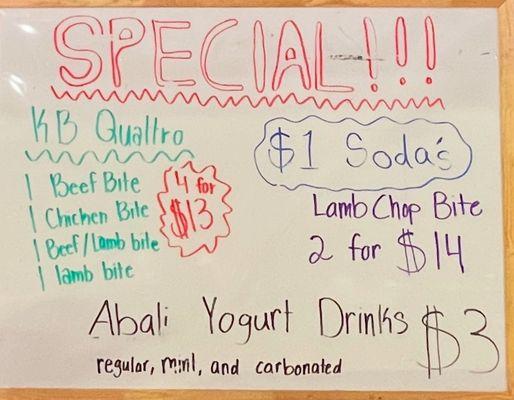 SPECIAL!!!
KB Quattro
1 Beef Bite
1 Chicken Bite
1 Beef/Lamb bite
1 lamb bite
4 for
$13
$1 Soda's
Lamb Chop Bite
2 for $14
Abali Yogurt Drinks $3
regular, mint, and carbonated